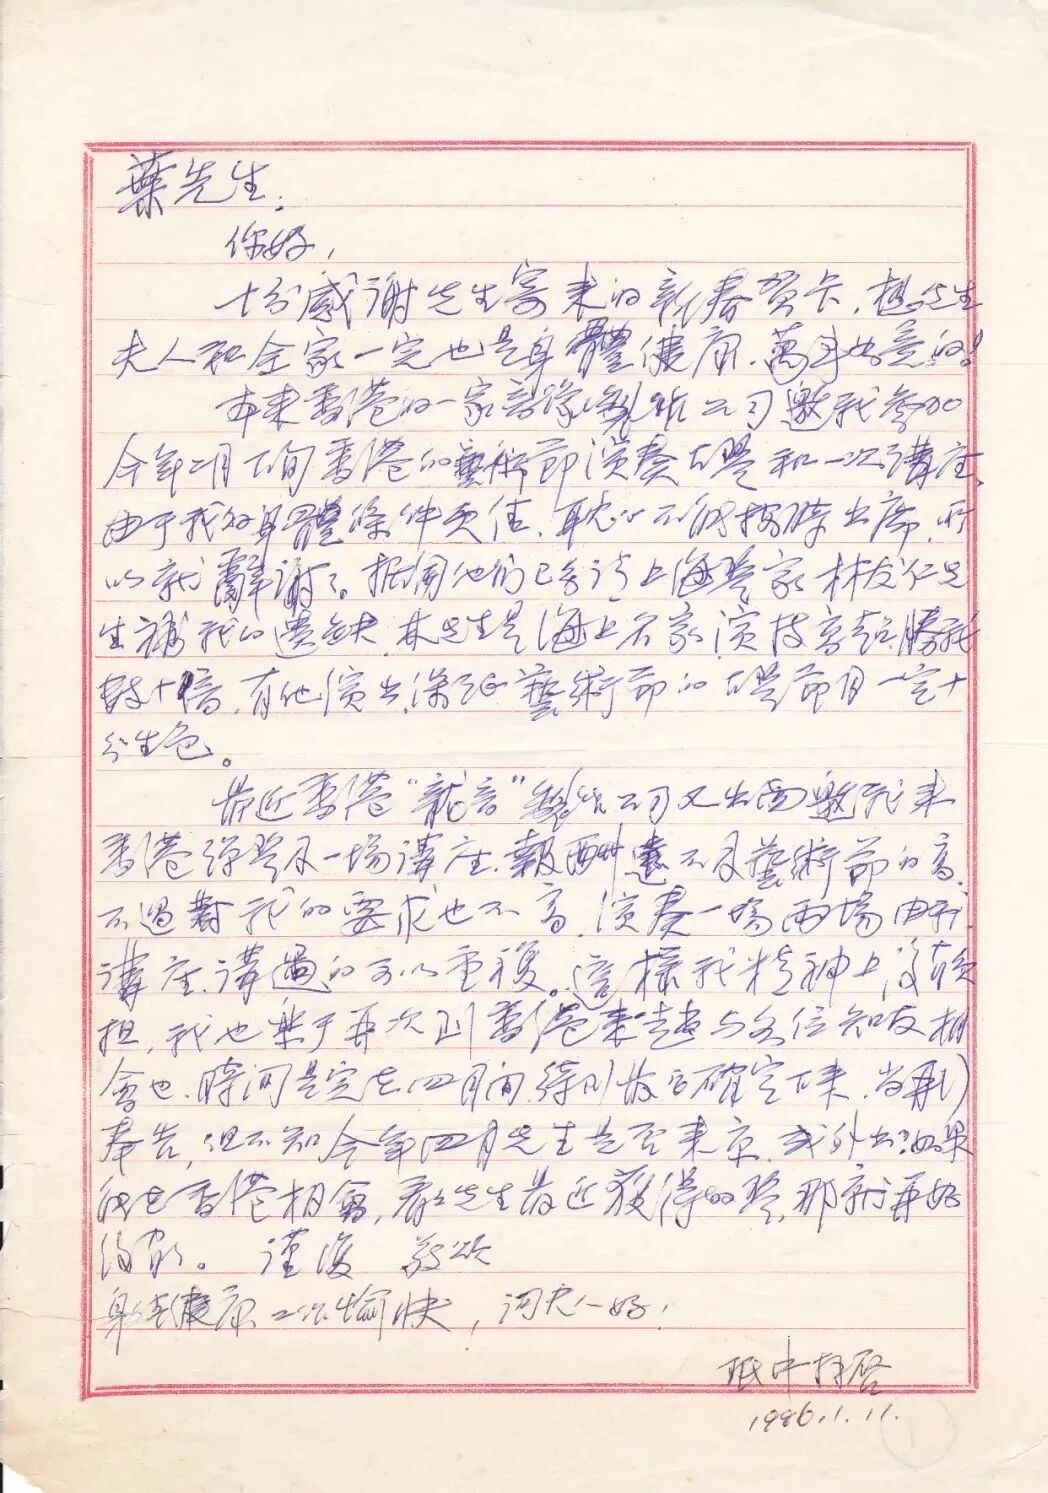 葉先生：
你好，
十分感谢先生寄来的新春贺卡，想先生
夫人和全家一定也是身體健康、萬事如意的！
本来香港的一家音像製作公司邀我参加
今年二月下旬香港的藝術節演奏古琴和一次講座，
由于我的身體條件页佳，耽心不能按時出席，所
以就辭謝了。据闻他们已委请上海琴家林友仁先
生補我的遗缺，林先生是海上名家，演技高超，勝我
数十倍，有他演出，保证藝術節的古琴節目一定十
分生色。
最近香港“龍音”製作公司又出面邀我来
香港弹琴及一場講座，報酬遠不及藝術節的高，
不過對我的要求也不高，演奏一場两場由我，
講座、講過的可以重複。這樣我精神上没有负
担，我也樂于再次到香港来趟与各位知友相
會也，時间是定在四月间，待川最后確定下来，当再
奉告，但不知今年四月先生是否来京，或外出？如果
能在香港相會，看看先生最近獲得的琴，那就再好
没有了。 谨復 敬颂
身体健康 工作愉快，问夫人好！
珉中拜啓
1996.1.11.